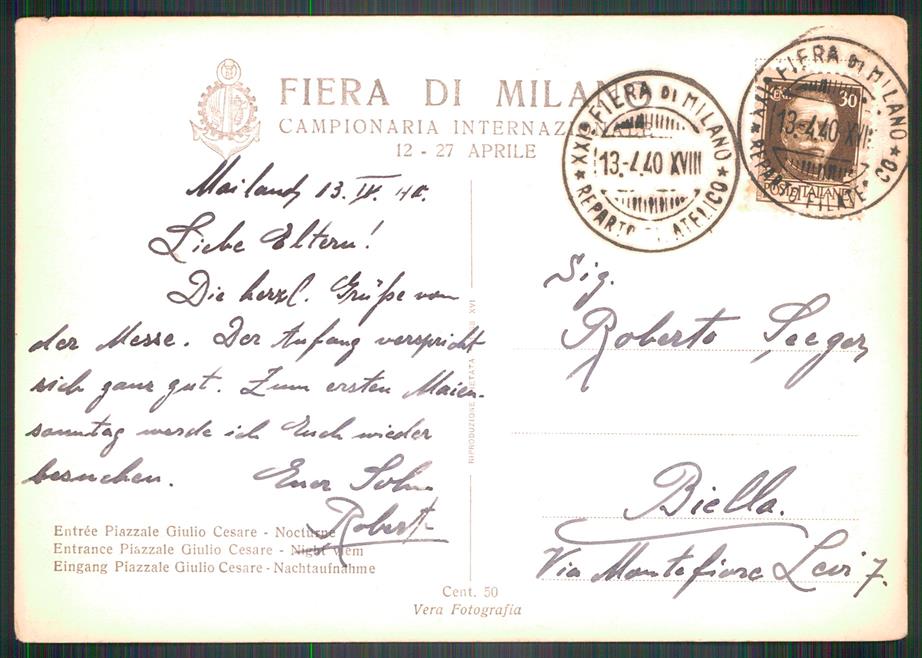 FIERA DI MILANO
CAMPIONARIA INTERNAZIONALE
12 - 27 APRILE
XXIª FIERA DI MILANO
13-4.40 XVIII
REPARTO FILATELICO
XXIª FIERA DI MILANO
13-4.40 XVIII
REPARTO FILATELICO
30
POSTE ITALIANE
Mailand 13. IV. 40.
Liebe Eltern!
Die herzl. Grüße von
der Messe. Der Anfang verspricht
sich ganz gut. Zum ersten Maien-
sonntag werde ich Euch wieder
besuchen. Euer Sohn
Robert
Sig.
Roberto Seeger
Biella.
Via Montefiore Levi 7.
RIPRODUZIONE VIETATA XVI
Entrée Piazzale Giulio Cesare - Nocturne
Entrance Piazzale Giulio Cesare - Night viem
Eingang Piazzale Giulio Cesare - Nachtaufnahme
Cent. 50
Vera Fotografia